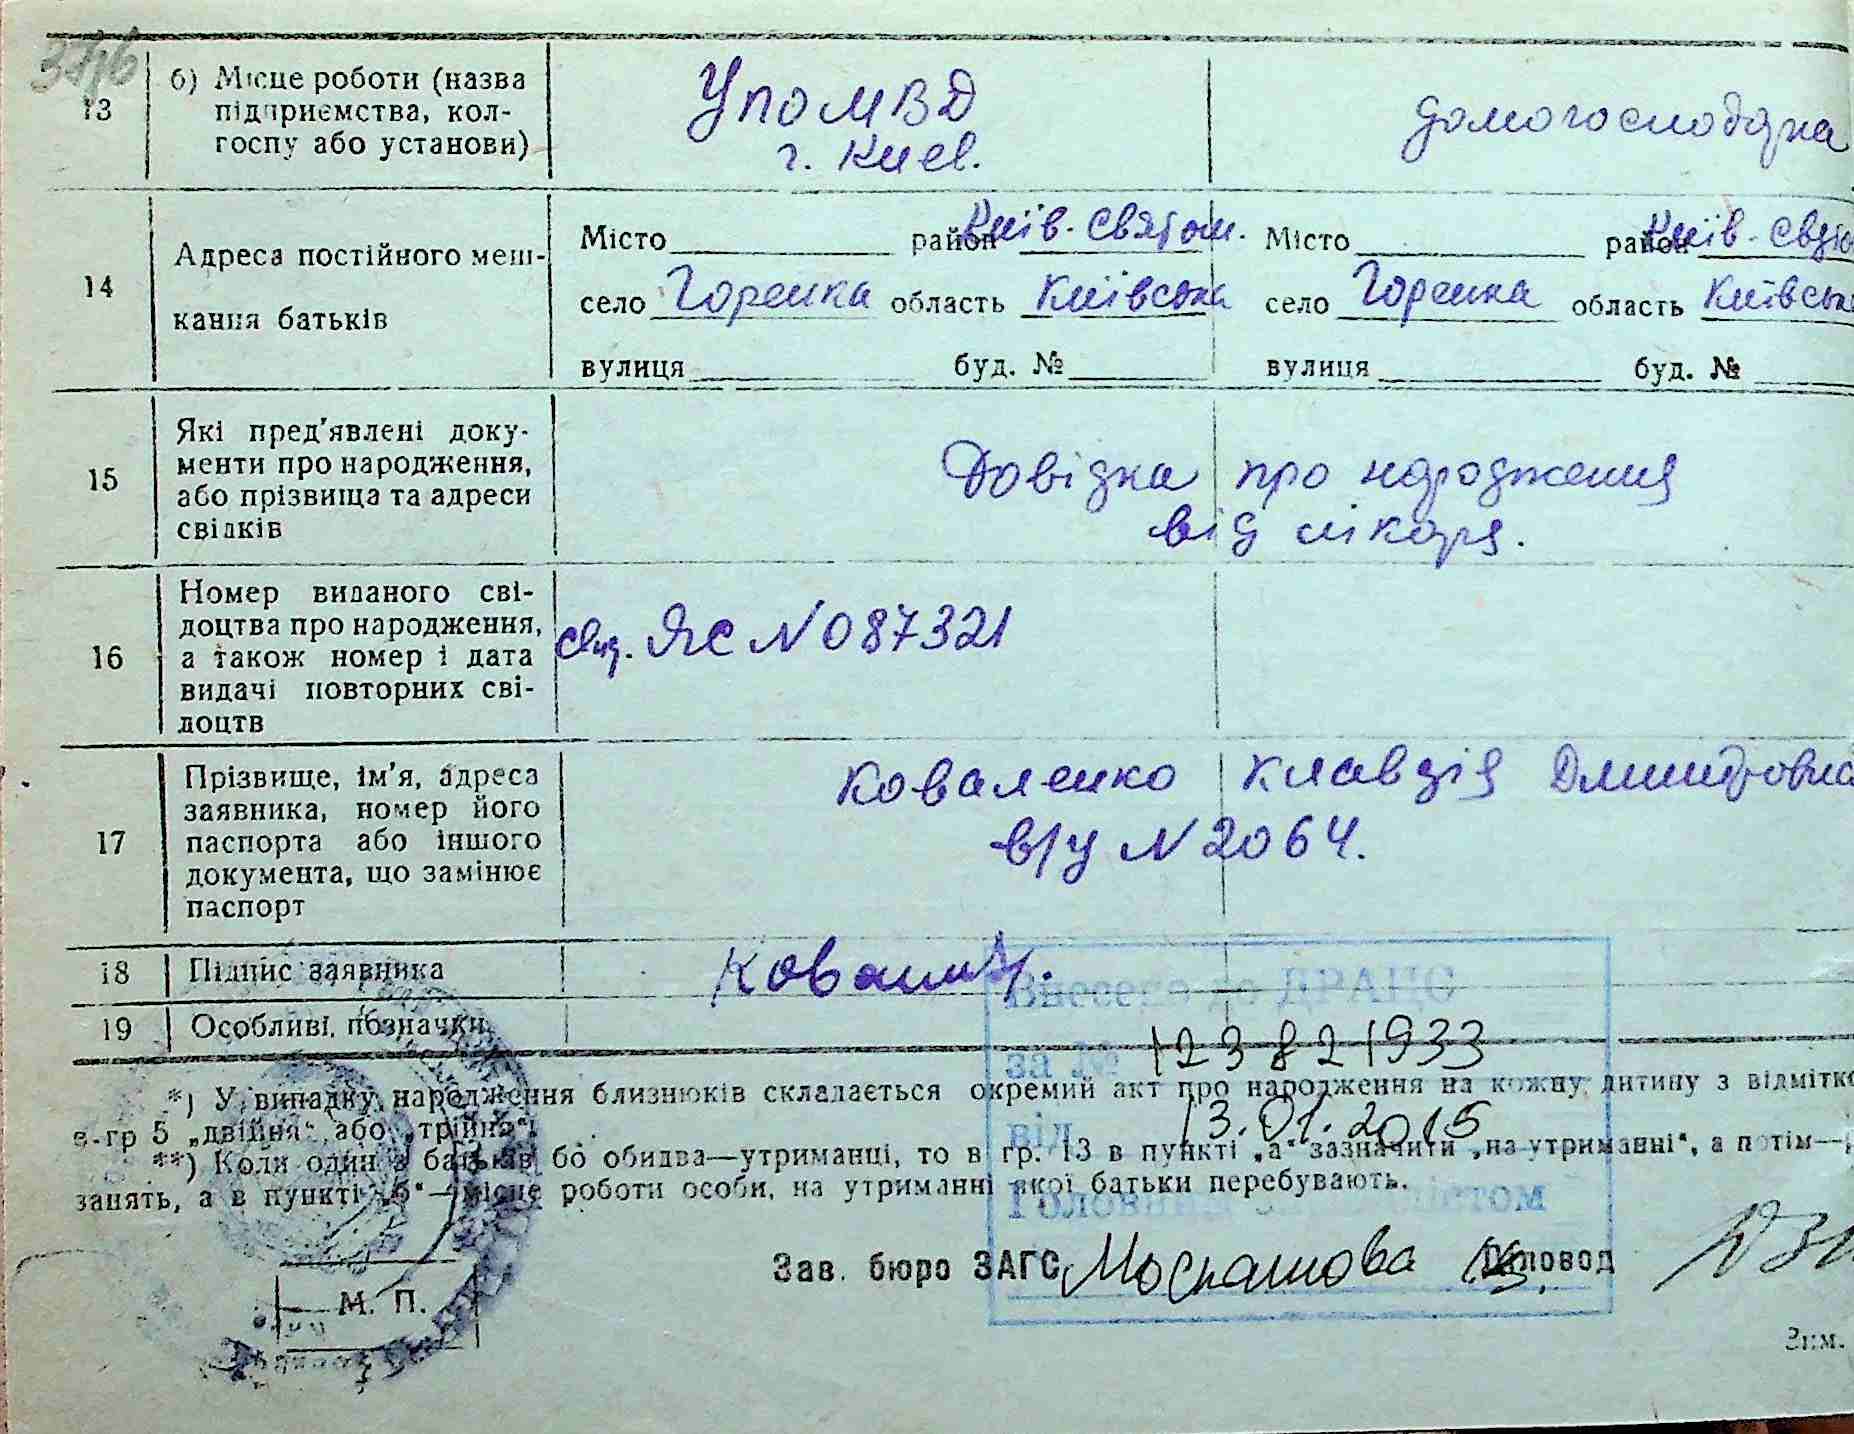 13 б) Місце роботи (назва підприємства, колгоспу або установи)
УпоМВД
г. Киев.
домогосподарка
14 Адреса постійного меш-
кання батьків
Місто район Київ-Святош. Місто район Київ-Свято
село Горенка область Київська село Горенка область Київська
вулиця буд. № вулиця буд. №
15 Які пред'явлені доку-
менти про народження,
або прізвища та адреси
свідків
Довідка про народження
від лікаря.
16 Номер виданого сві-
доцтва про народження,
а також номер і дата
видачі повторних сві-
доцтв
ЯС N 087321
17 Прізвище, ім'я, адреса
заявника, номер його
паспорта або іншого
документа, що замінює
паспорт
Коваленко Клавдія
в/у N 2064.
18 Підпис заявника
19 Особливі позначки
Внесено до ДРАЦС
за № 123821933
від 13.01.2015
Головним спеціалістом
*) У випадку народження близнюків складається окремий акт про народження на кожну дитину з відмітко
в гр 5 „двійня“ або „трійня“.
**) Коли один з батьків бо обидва—утриманці, то в гр. 13 в пункті „а“ зазначити „на утриманні“, а потім—
занять, а в пункті „б“—місце роботи особи, на утриманні якої батьки перебувають.
Зав. бюро ЗАГС Діловод
М. П.
Зим.